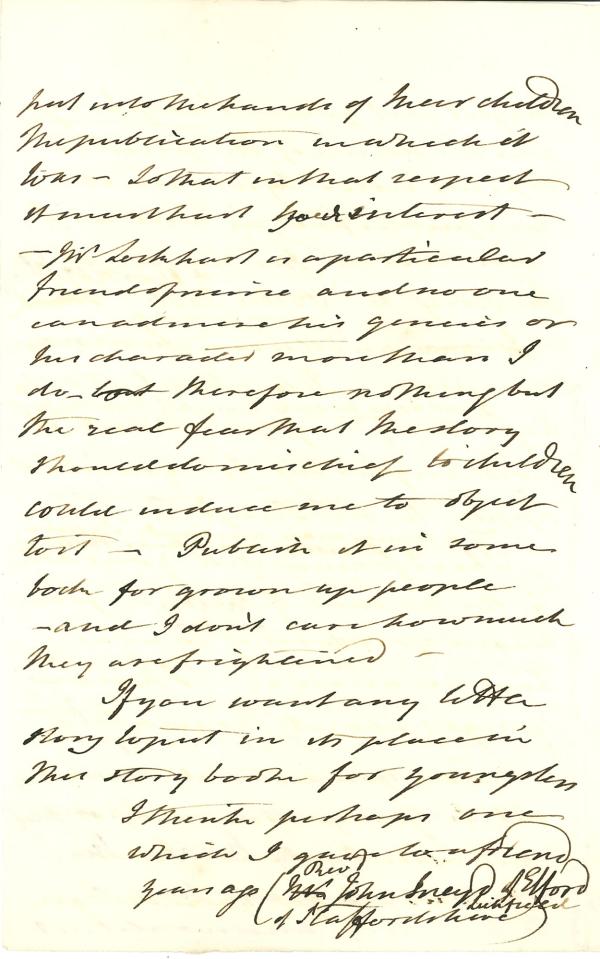 put into the hands of their children
the publication in which it
was – So that in that respect
it must hurt your interest –
– Mr Lockhart is a particular
friend of mine and no one
can admire his genius or
his character more than I
do – but therefore nothing but
the real fear that the story
should do mischief to children
could induce me to object
to it – Publish it in some
book for grown up people
– and I don't care how much
they are frightened –
If you want any little
story to put in its place in
this story book for youngsters
I think perhaps one
which I gave to a friend
years ago (Revd John Sneyd of Elford
Lichfield
of Staffordshire)